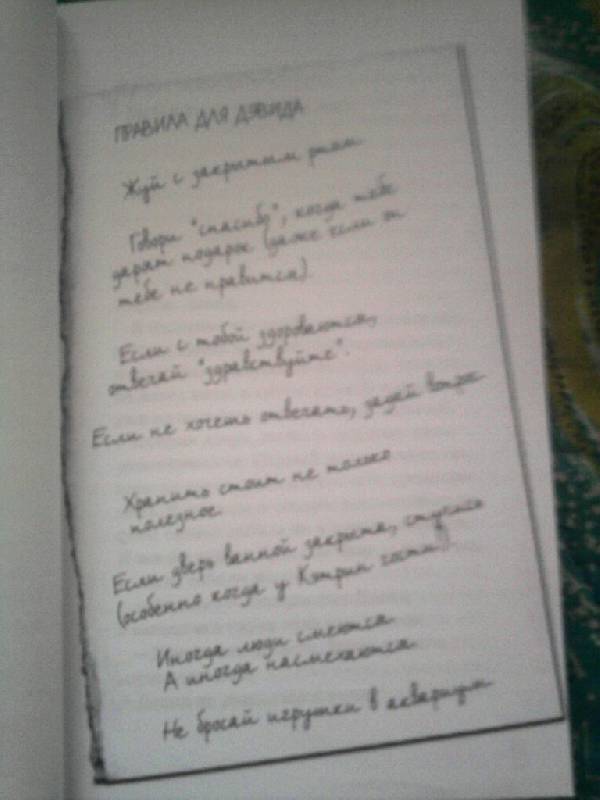 ПРАВИЛА ДЛЯ ДЭВИДА
Жуй с закрытым ртом
Говори "спасибо", когда тебе
дарят подарок (даже если он
тебе не нравится).
Если с тобой здороваются,
отвечай "здравствуйте".
Если не хочешь отвечать, задай вопрос
Хранить стоит не только
полезное
Если дверь ванной закрыта, стучись
(особенно когда у Кэтрин гости).
Иногда люди смеются
А иногда насмехаются
Не бросай игрушки в аквариум